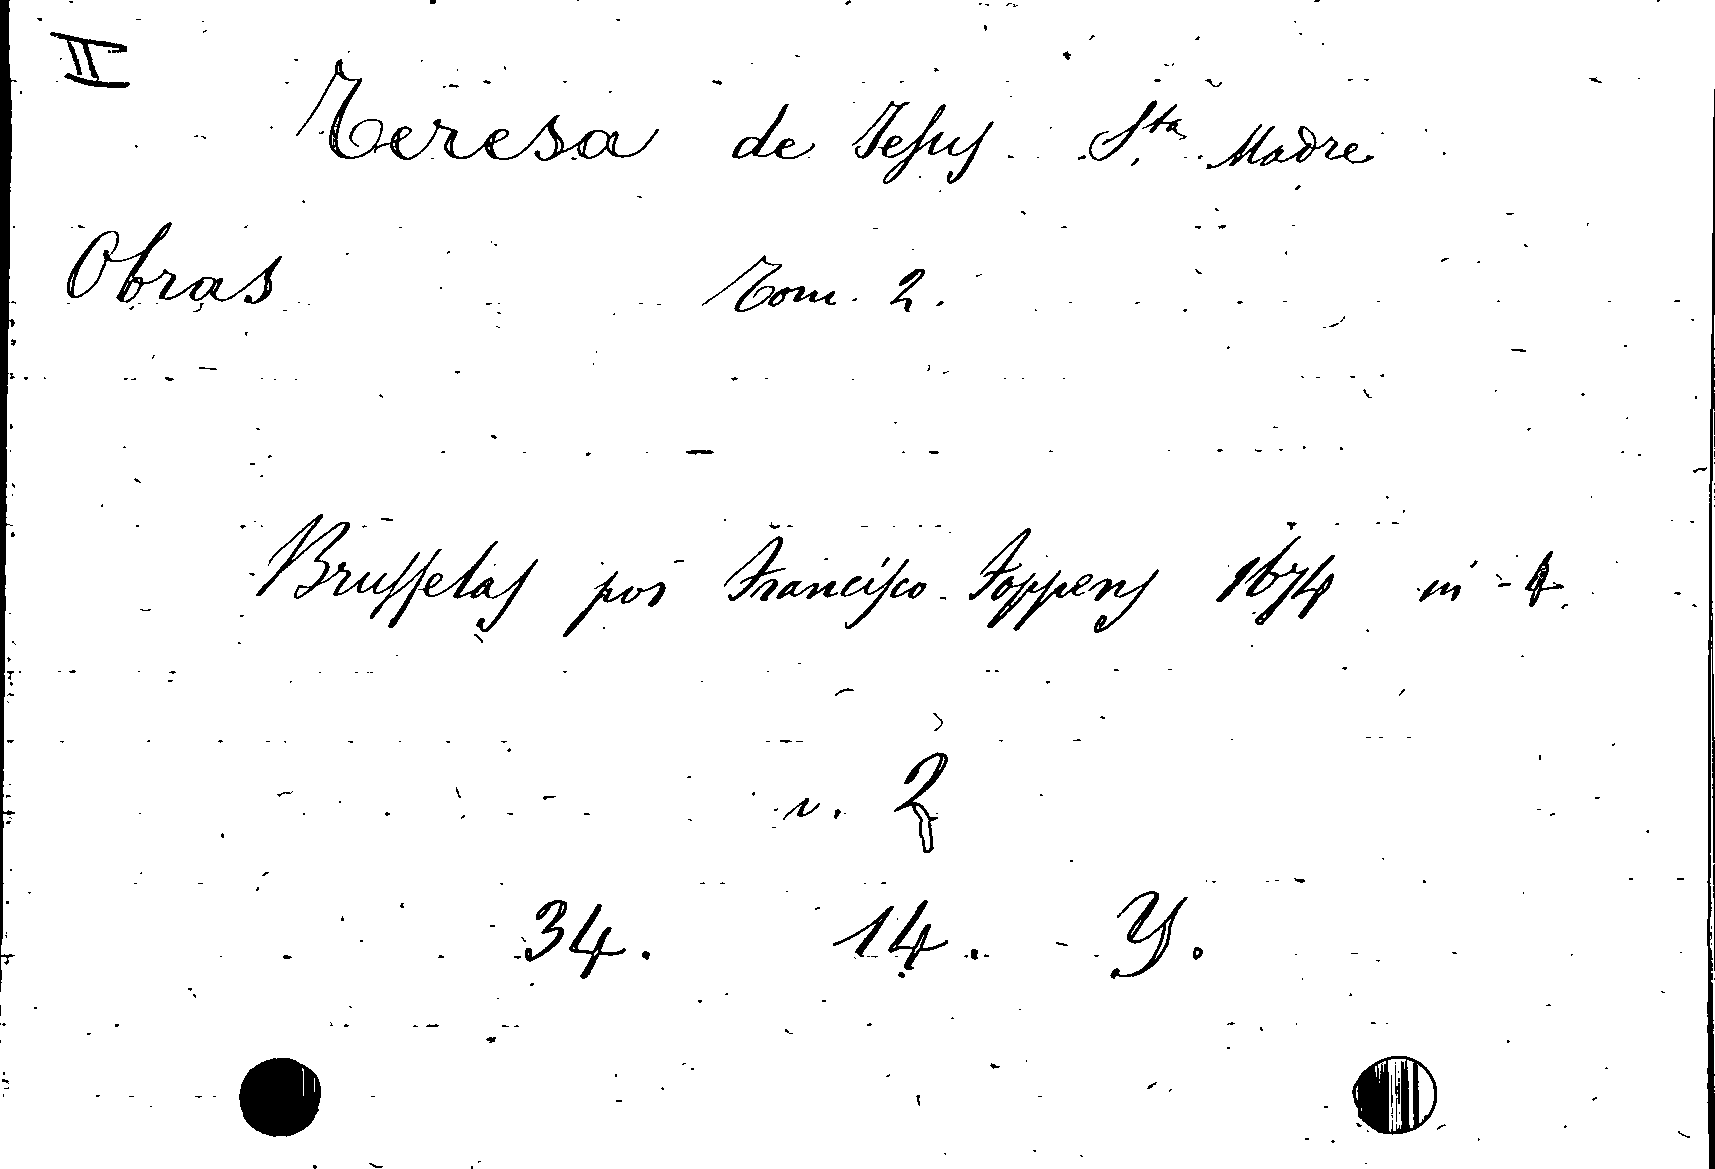 II
Teresa de Jesus Sta Madre
Obras Tom. 2.
Brusselas por Francisco Foppens 1674 in - 4
v. 2
34. 14. Y.